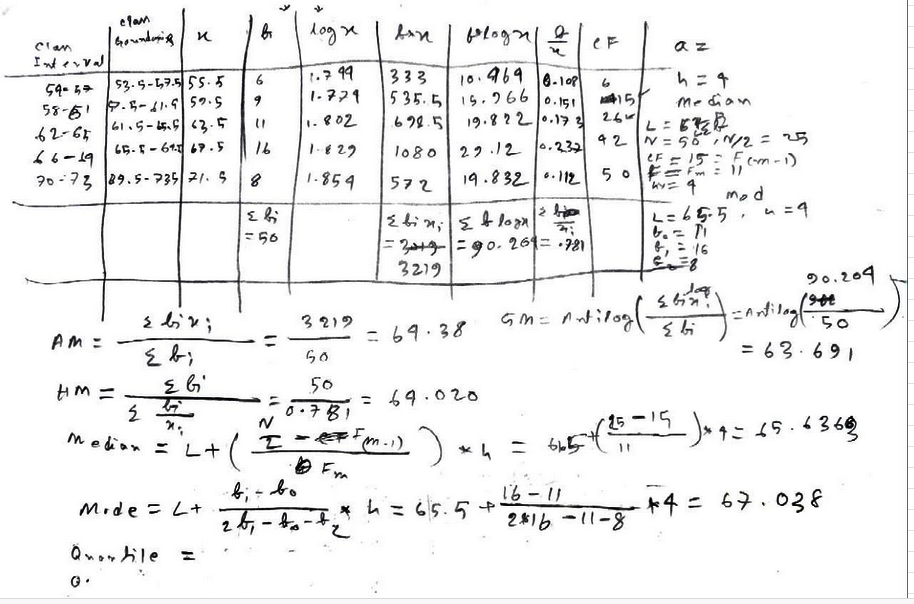 Class Interval | class boundaries | x | f | log x | f*x | f*log x | f/x | CF
54-57 | 53.5-57.5 | 55.5 | 6 | 1.744 | 333 | 10.464 | 0.108 | 6
58-61 | 57.5-61.5 | 59.5 | 9 | 1.774 | 535.5 | 15.966 | 0.151 | 15
62-65 | 61.5-65.5 | 63.5 | 11 | 1.802 | 698.5 | 19.822 | 0.173 | 26
66-69 | 65.5-69.5 | 67.5 | 16 | 1.829 | 1080 | 29.12 | 0.237 | 42
70-73 | 69.5-735 | 71.5 | 8 | 1.854 | 572 | 14.832 | 0.112 | 50
Σfi = 50 | Σfixi = 3219 | Σf logx = 90.204 | = .781
a =
h = 4
median
L =
N = 50, N/2 = 25
CF = 15 = F(m-1)
Fm = 11
h = 4
mod
L = 65.5, h = 4
f0 = 11
f1 = 16
f2 = 8
AM = Σfixi / Σfi = 3219 / 50 = 64.38
GM = Antilog(Σfi log xi / Σfi) = Antilog(90.204 / 50)
= 63.691
HM = Σfi / Σ fi/xi = 50 / 0.781 = 64.020
Median = L + (N/2 - F(m-1) / Fm) * h = 61.5 + (25-15 / 11) * 4 = 65.636
Mode = L + f1 - f0 / 2f1 - f0 - f2 * h = 65.5 + 16-11 / 2*16 -11-8 *4 = 67.038
Quartile =
Q.